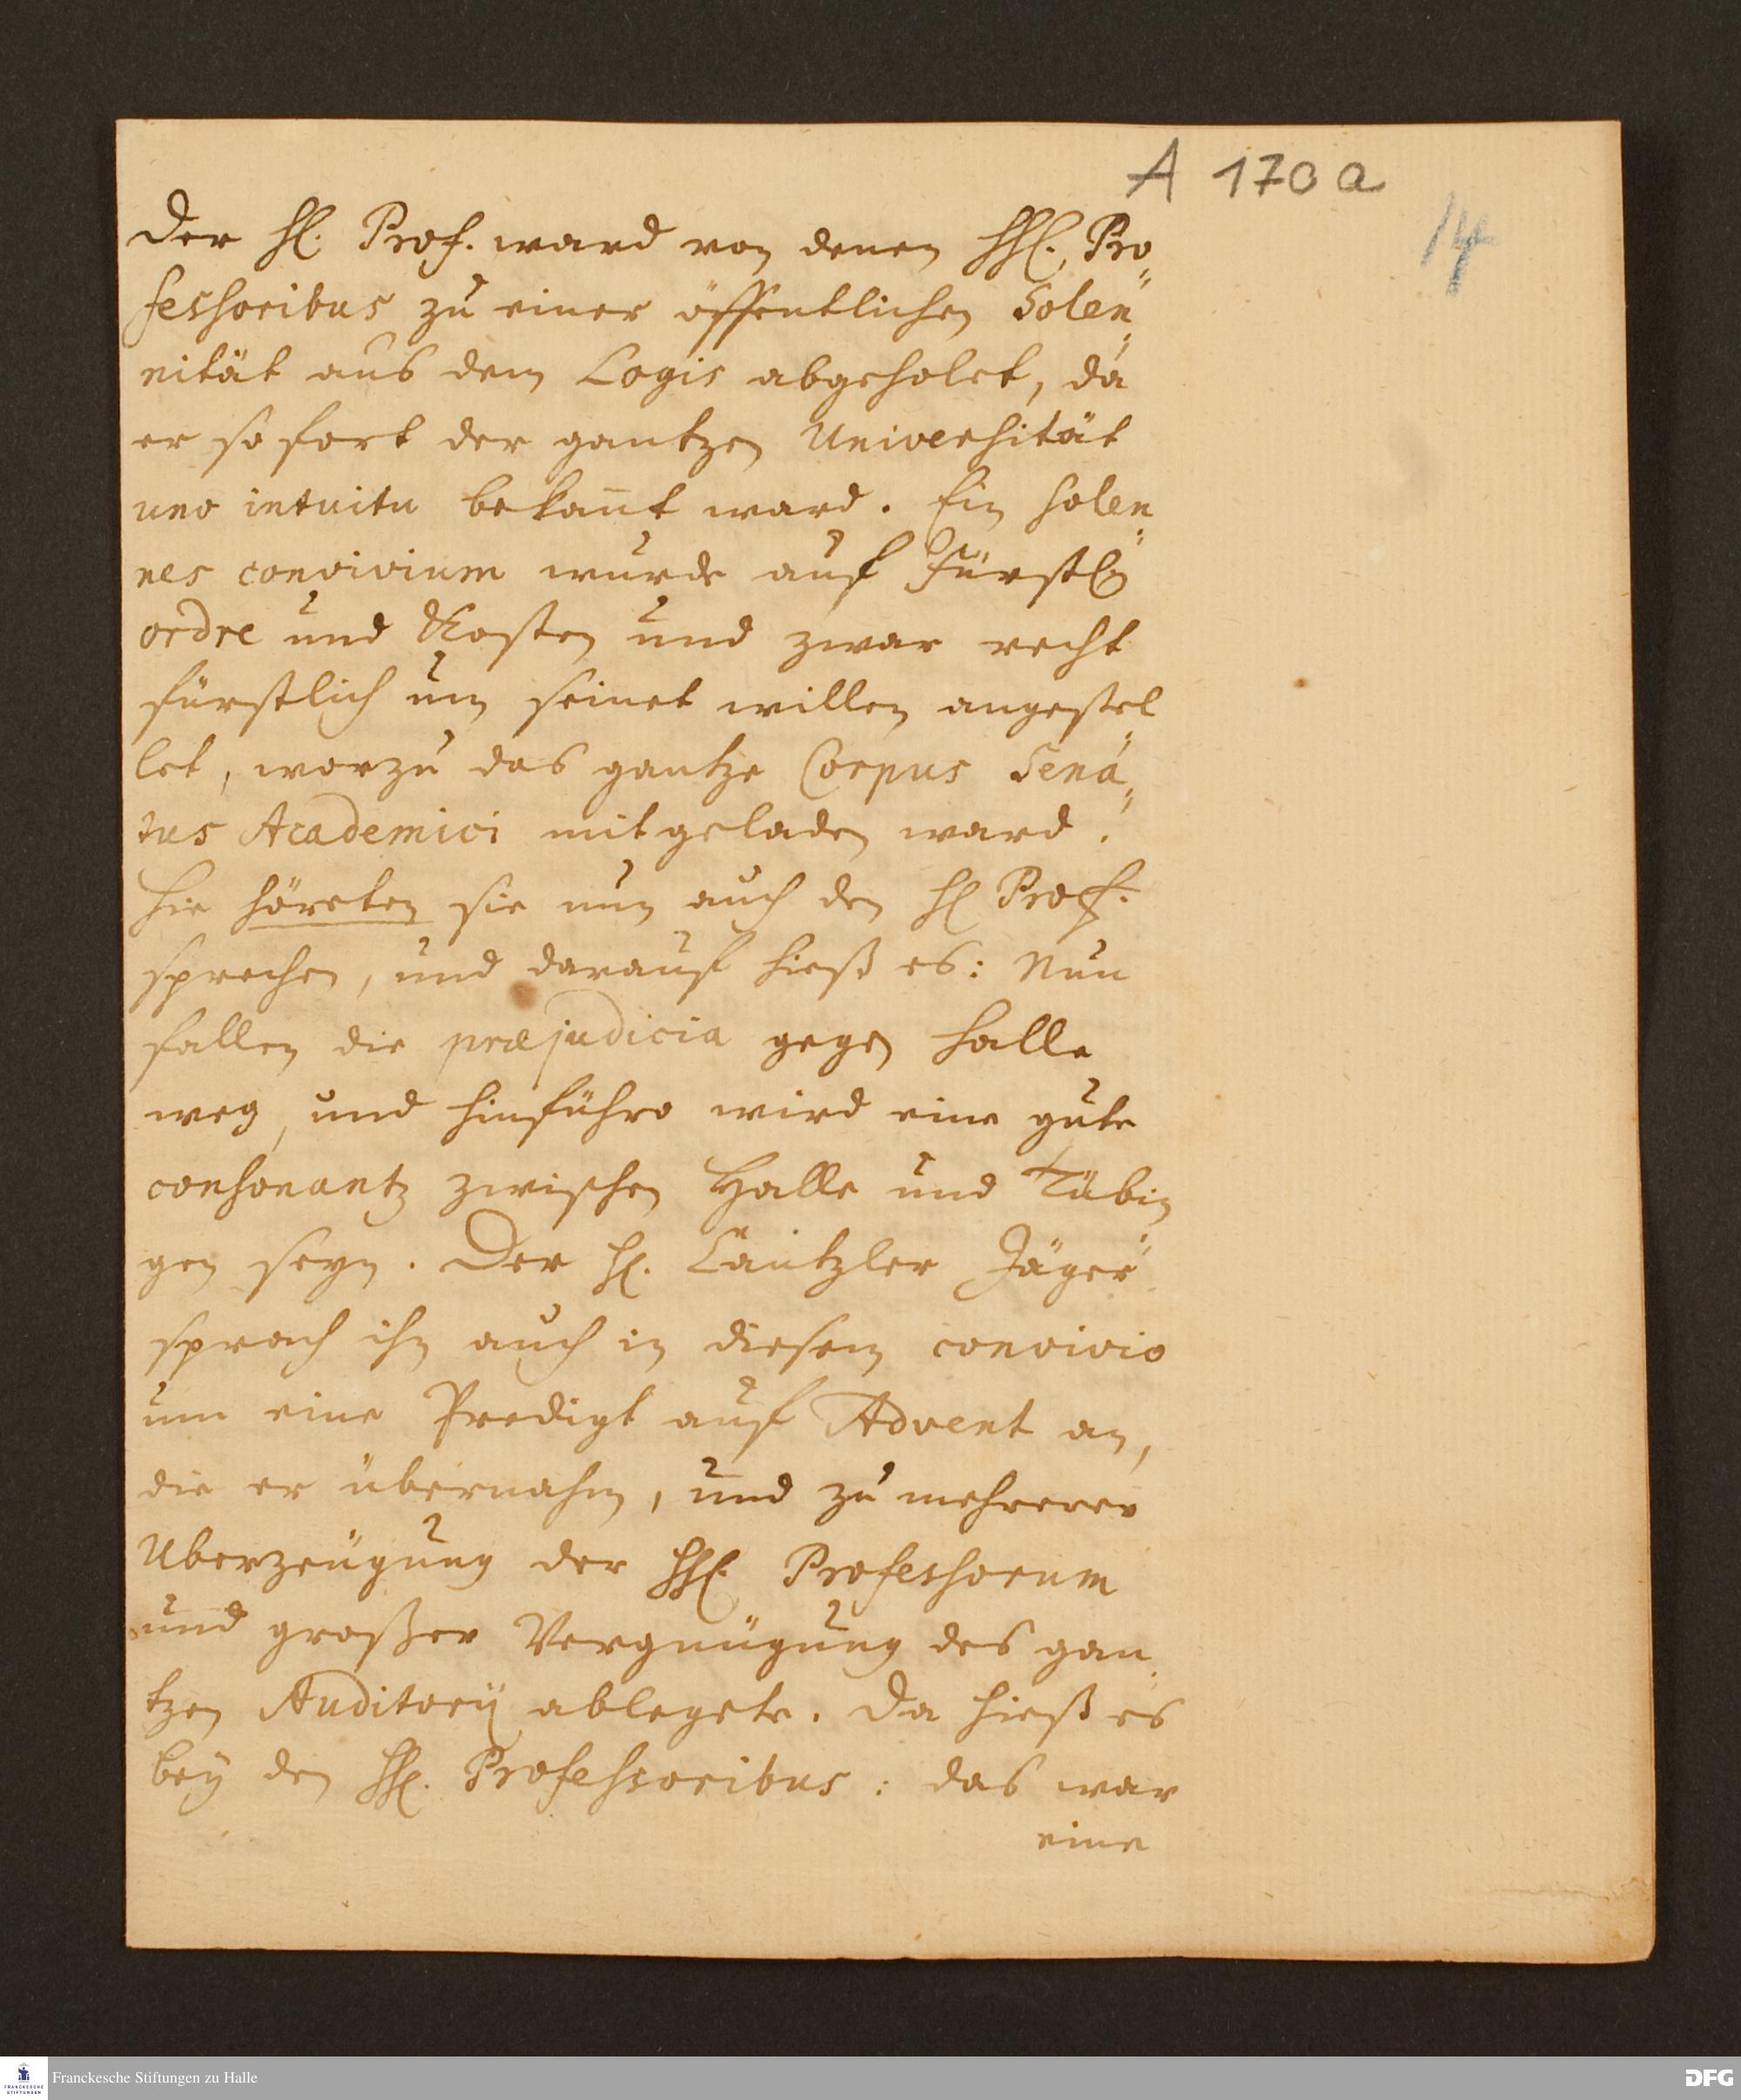 A 170 a
14
Der H. Prof. ward von denen HH. Pro„
fessoribus zu einer öffentlichen Solen„
nität aus dem Logis abgeholet, da
er so fort der gantzen Universität
uno intuitu bekañt ward. Ein solen„
nes convivium wurde auf Fürstl.
ordre und Kosten und zwar recht
fürstlich um seinet willen angestel„
let, worzu das gantze Corpus Sena„
tus Academici mit geladen ward.
Hie höreten sie nun auch den H Prof.
sprechen, und darauf hieß es: Nun
fallen die præjudicia gegen Halle
weg, und hinführo wird eine gute
consonantz zwischen Halle und Tübin„
gen seyn. Der H. Cantzler Jäger
sprach ihn auch in diesem convivio
um eine Predigt auf Advent an,
die er übernahm, und zu mehrerer
Uberzeugung der HH. Professorum
und großer Vergnügung des gan„
tzen Auditorij ablegete. Da hieß es
bey den HH. Professoribus: das war
eine
Franckesche Stiftungen zu Halle
FRANCKESCHE
STIFTUNGEN
DFG